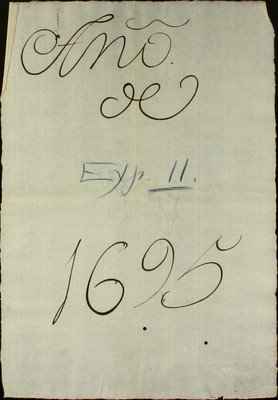 Año.
de
Exp. 11.
1695